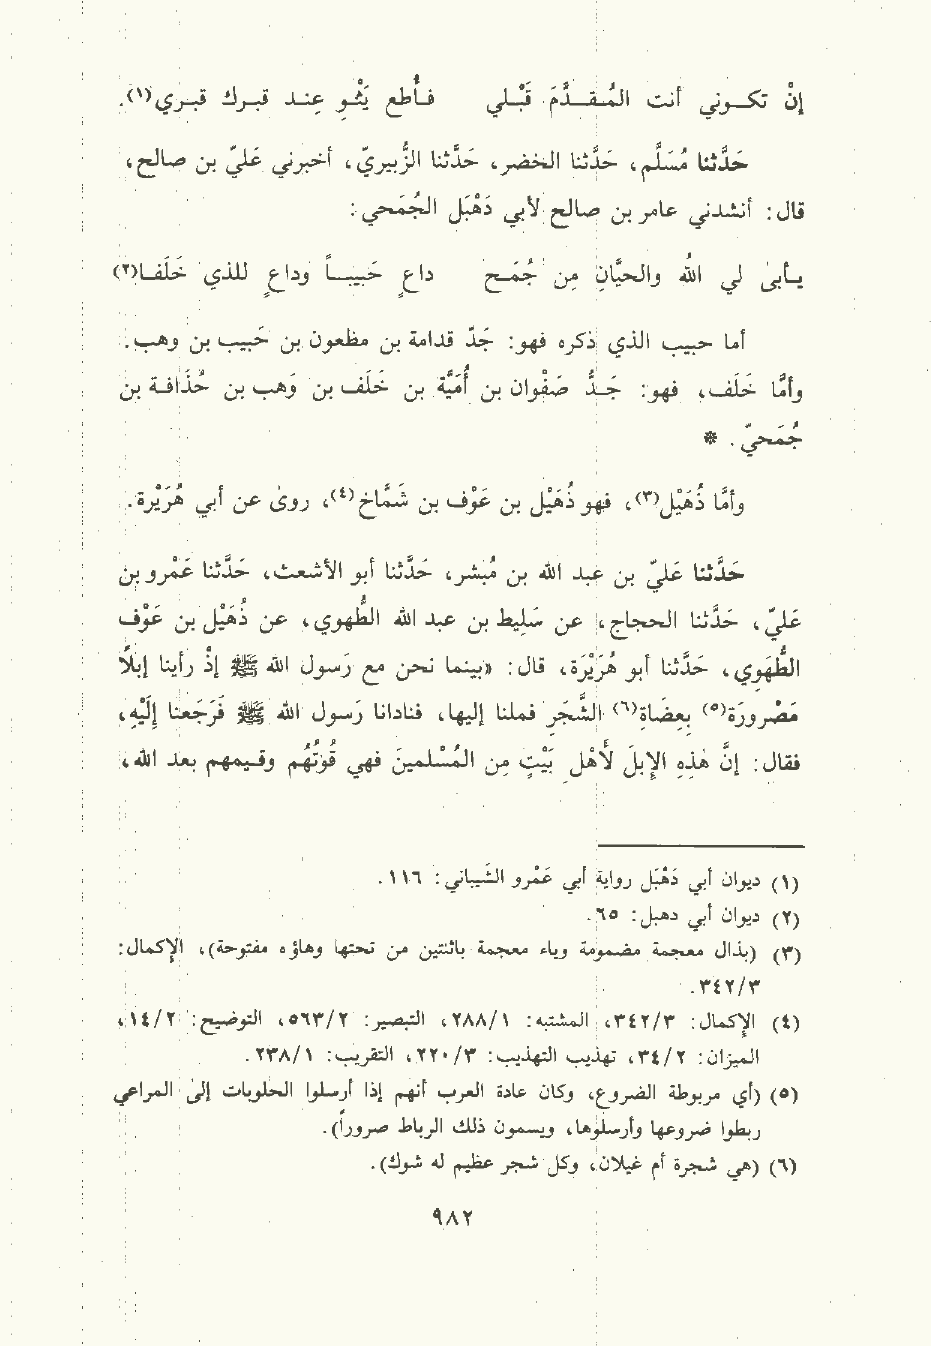 إنْ تكـــوني أنت المُــقــدَّمَ قَبْــلي فــأُطع يَثْــوِ عِنــد قبــرك قبــري(١).
حَدَّثنا مُسَلَّم، حَدَّثنا الخضر، حَدَّثنا الزُّبيريّ، أخبرني عَليّ بن صالح،
قال: أنشدني عامر بن صالح لأبي دَهْبَل الجُمَحي:
يــأبىٰ لي الله والحيَّانِ مِن جُمَــح داعٍ حَبيبــاً وداعٍ للذي خَلَفــا(٢)
أما حبيب الذي ذكره فهو: جَدّ قدامة بن مظعون بن حَبيب بن وهب.
وأمَّا خَلَف، فهو: جَــدُّ صَفْوان بن أُمَيَّة بن خَلَف بن وَهب بن حُذَافــة بن
جُمَحيّ. *
وأمَّا ذُهَيْل(٣)، فهو ذُهَيْل بن عَوْف بن شَمَّاخ(٤)، روىٰ عن أبي هُرَيْرة.
حَدَّثنا عَليّ بن عبد الله بن مُبشر، حَدَّثنا أبو الأشعث، حَدَّثنا عَمْرو بن
عَليّ، حَدَّثنا الحجاج، عن سَليط بن عبد الله الطُّهوي، عن ذُهَيْل بن عَوْف
الطُّهَوِي، حَدَّثنا أبو هُرَيْرَة، قال: «بينما نحن مع رسُول الله ﷺ إذْ رأينا إبلًا
مَصْرورَة(٥) بِعِضَاةِ(٦) الشَّجَرِ فملنا إليها، فنادانا رَسُول الله ﷺ فَرَجَعنا إليْهِ،
فقال: إنَّ هٰذِهِ الإبلَ لَأهْلِ بَيْتٍ مِن المُسْلمينَ فهي قُوتُهُم وقيمهم بعد الله،
(١) ديوان أبي دَهْبَل رواية أبي عَمْرو الشَّيباني: ١١٦.
(٢) ديوان أبي دهبل: ٦٥.
(٣) (بذال معجمة مضمومة وياء معجمة باثنتين من تحتها وهاؤه مفتوحة)، الإكمال:
٣٤٢/٣.
(٤) الإكمال: ٣٤٢/٣، المشتبه: ٢٨٨/١، التبصير: ٥٦٣/٢، التوضيح: ١٤/٢،
الميزان: ٣٤/٢، تهذيب التهذيب: ٢٢٠/٣، التقريب: ٢٣٨/١.
(٥) (أي مربوطة الضروع، وكان عادة العرب أنهم إذا أرسلوا الحلوبات إلىٰ المراعي
ربطوا ضروعها وأرسلوها، ويسمون ذلك الرباط صروراً).
(٦) (هي شجرة أم غيلان، وكل شجر عظيم له شوك).
٩٨٢